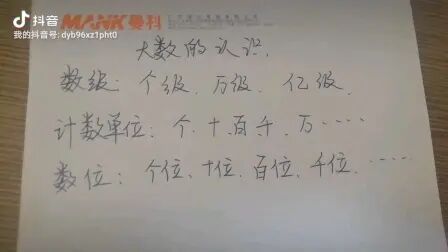 抖音
我的抖音号: dyb96xz1pht0
MANK曼科
大数的认识.
数级: 个级、万级、亿级.
计数单位: 个.十.百千.万·····
数位: 个位、十位、百位、千位、·····